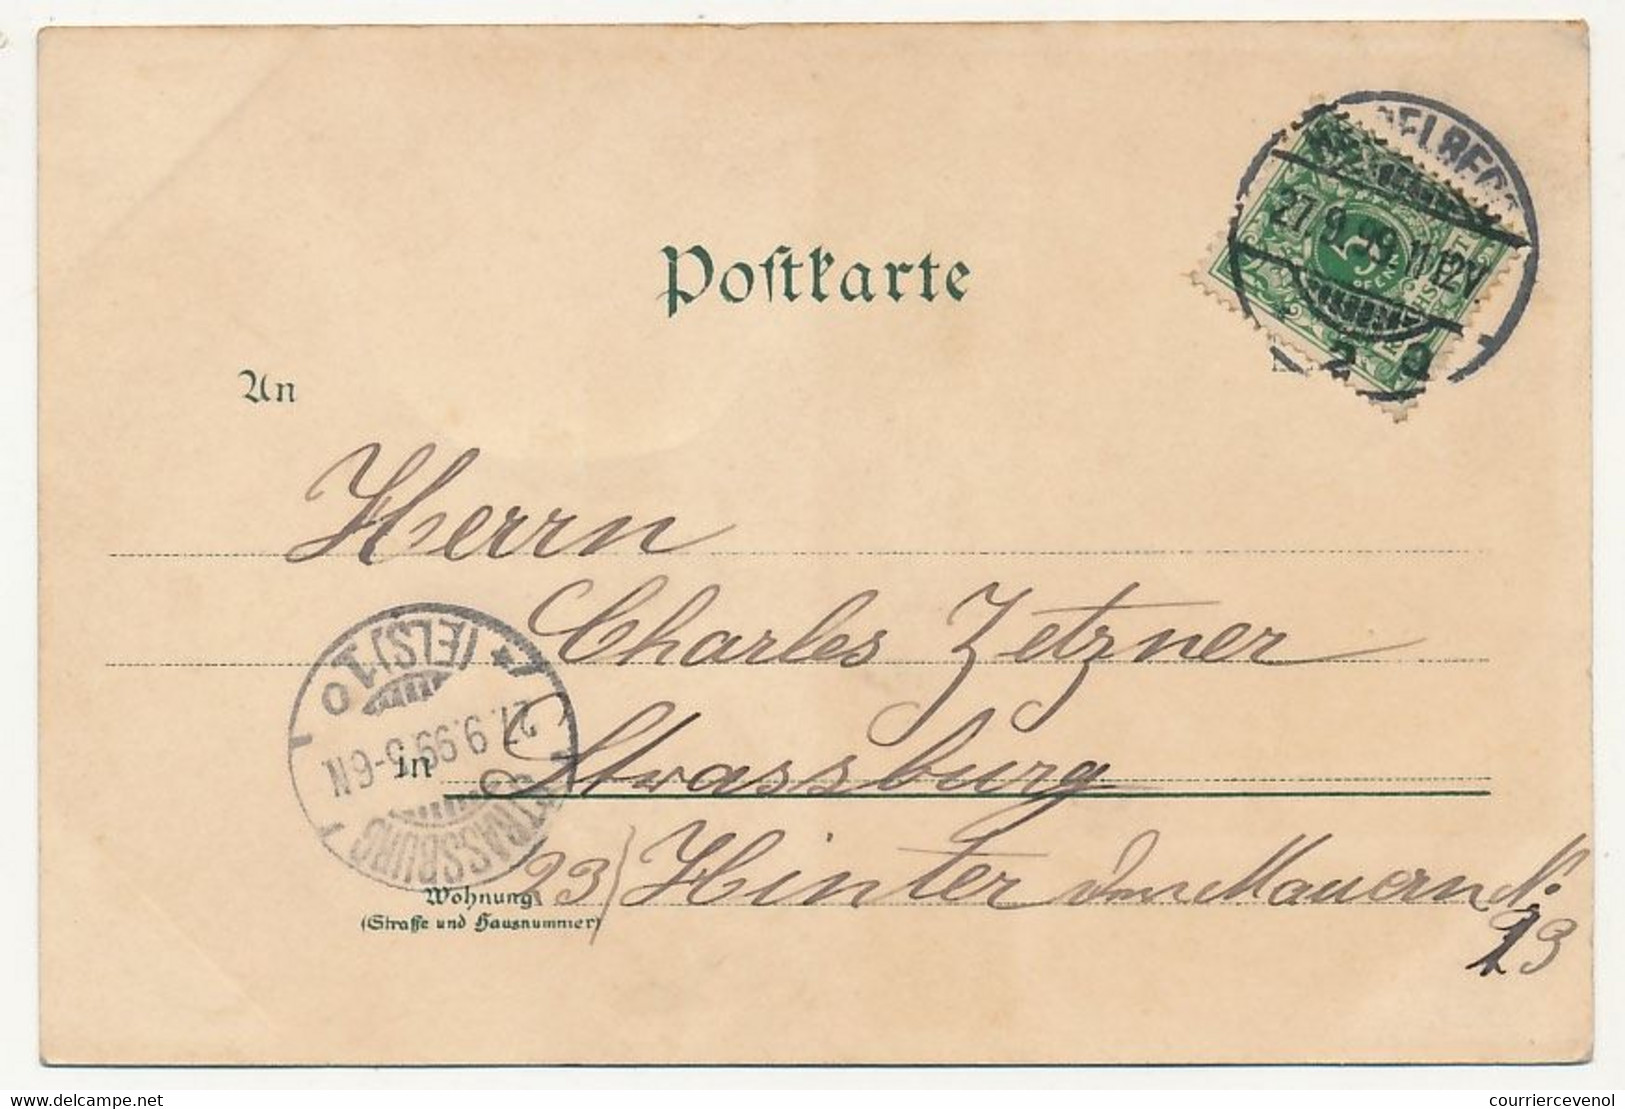 Postkarte
27.9.99.11-12V.
2 a
5
An
Herrn
Charles Zetzner
In Strassburg
STRASSBURG (ELS) 1 o
27.9.99.5-6N.
23) Hinter den Mauern No
23
Wohnung
(Straße und Hausnummer)
www.courriercevenol.com